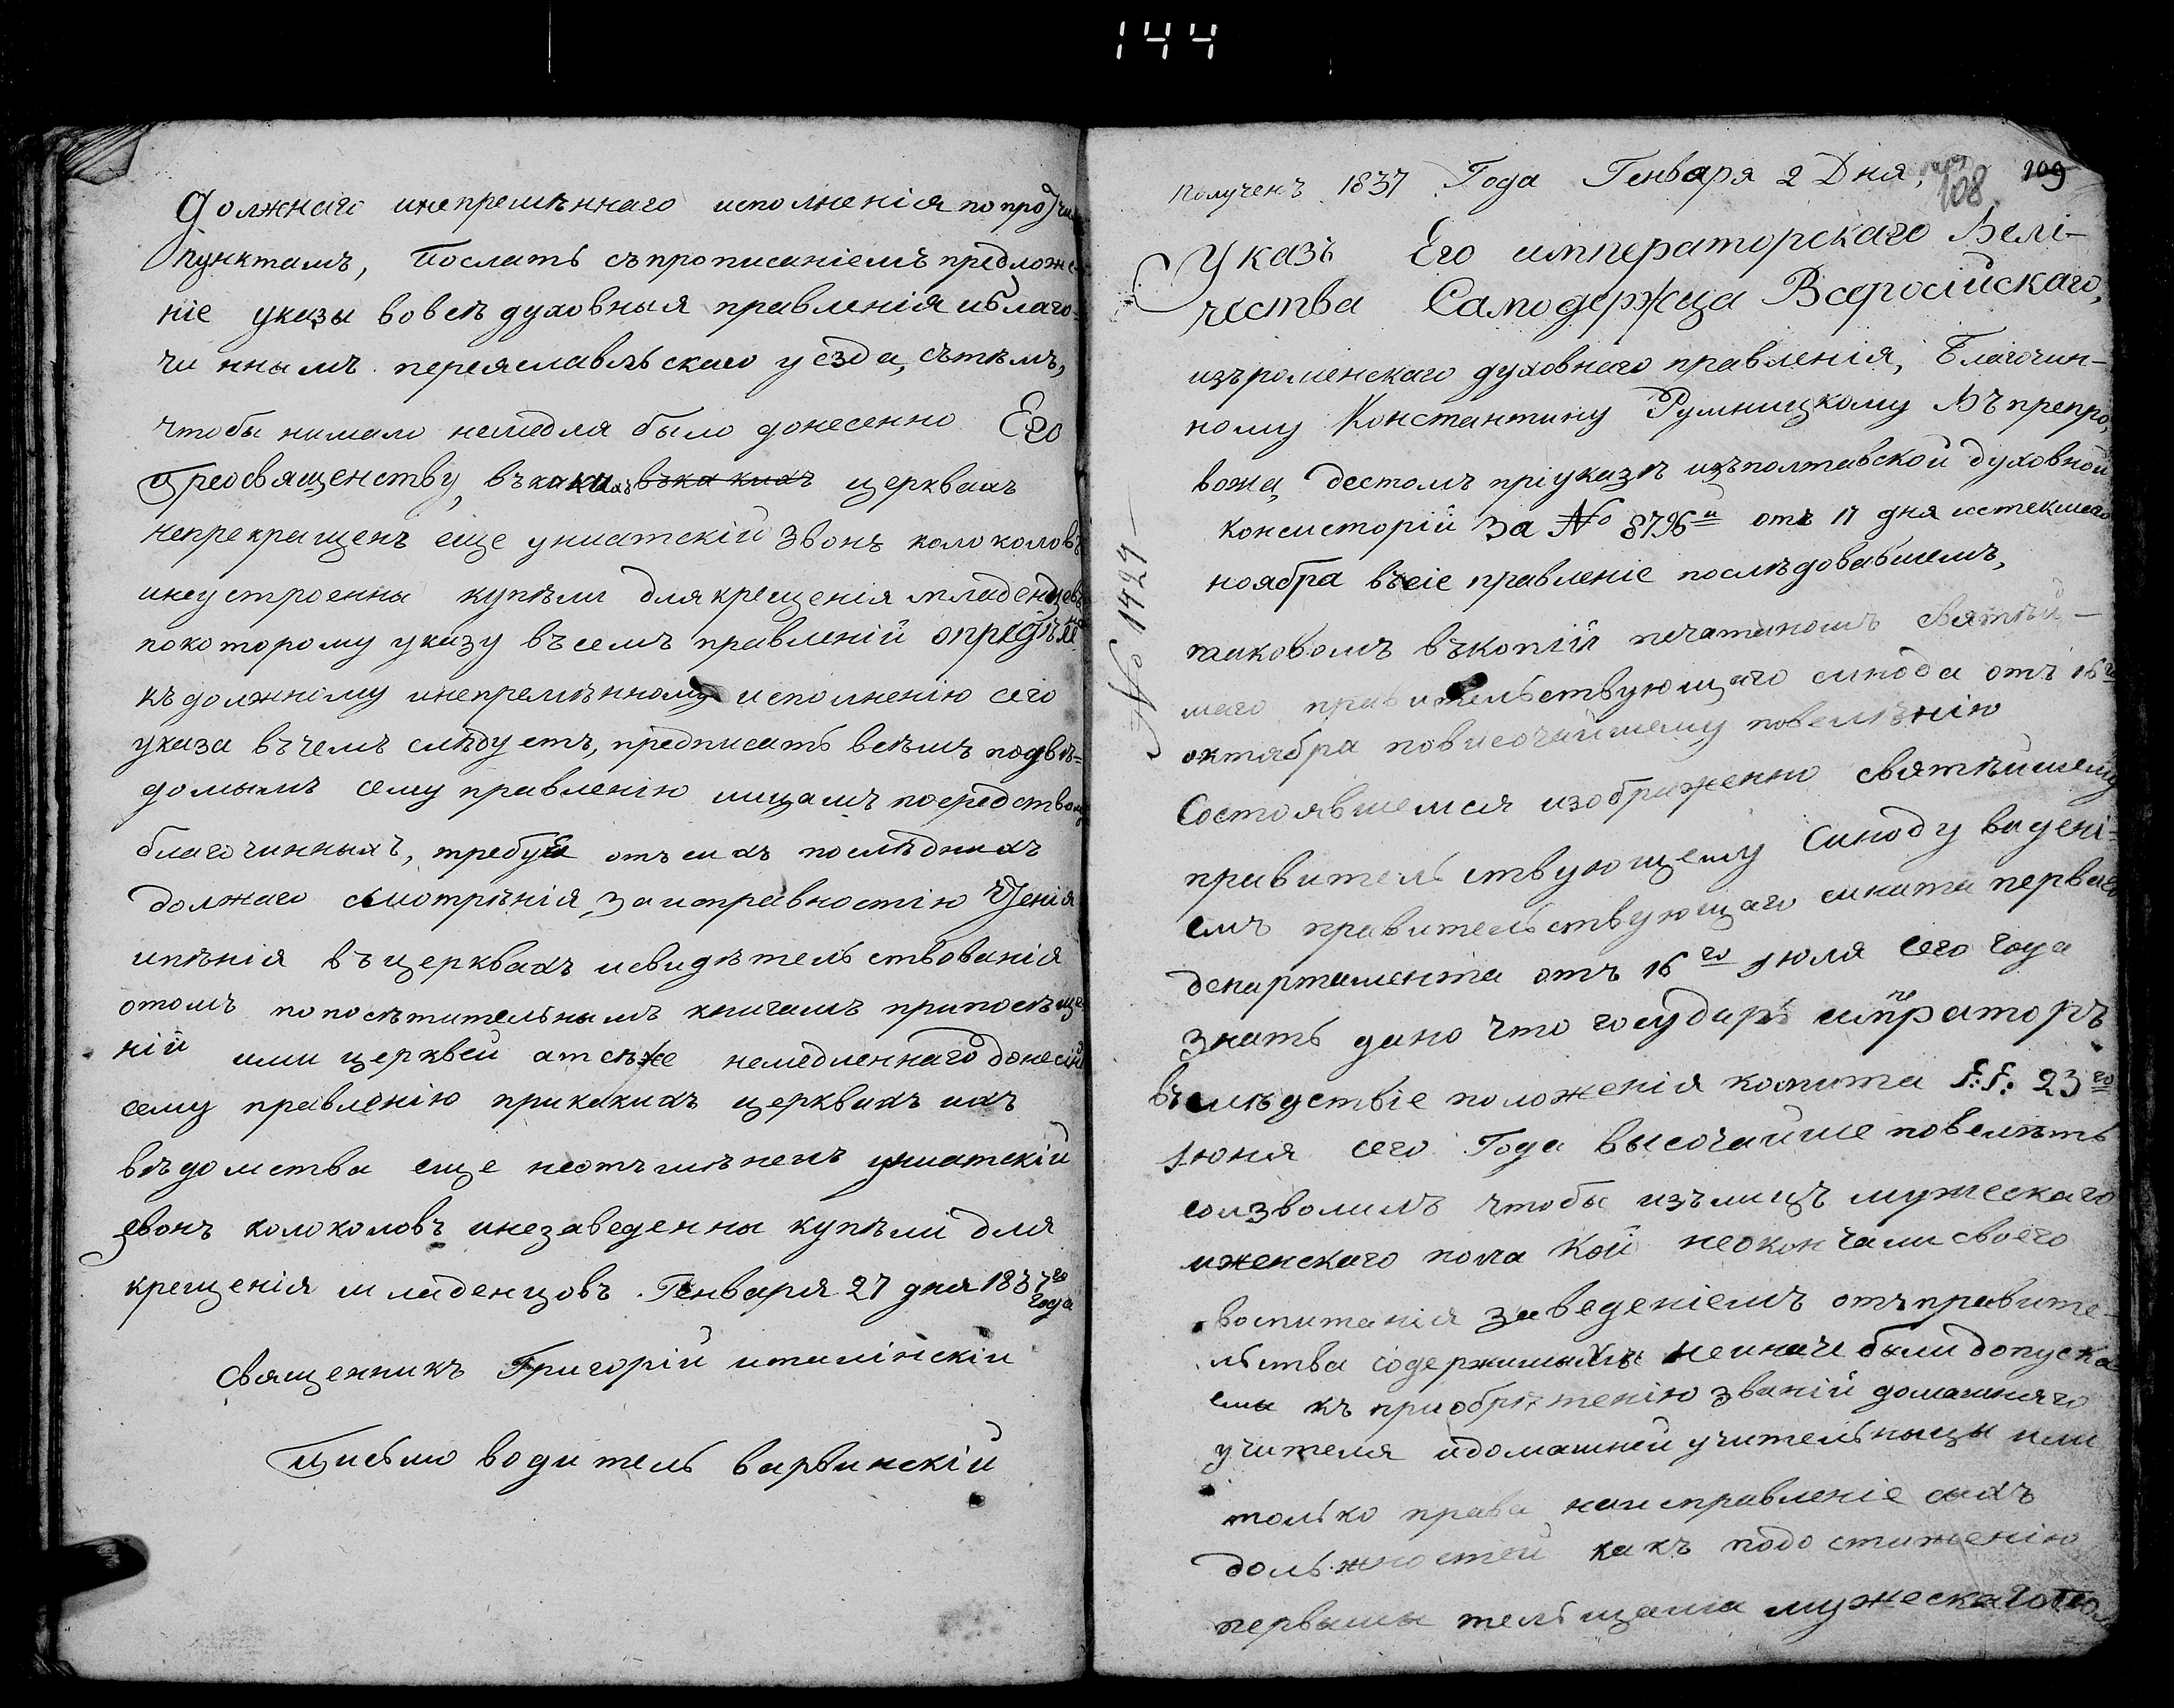 144
должнаго инепремѣннаго исполненія по проччи
пунктамъ, Послать съпрописаніемъ предложе-
ніе указы вовсѣ духовныя правленія иблаго-
чи ннымъ переяславльскаго уезда, сътѣмъ,
чтобы нимало немедля было донесенно Его
Преосвященству, въкакихъ въка кихъ церквахъ
непрекращенъ еще униатскій звонъ колоколовъ
инеустроенны купѣли длякрещенія младенцевъ
покоторому указу въсемъ правленій опредѣле
къдолжному инепремѣнному исполненію сего
указа въчемъ слѣдуетъ, предписать всѣмъ подвѣ=
домымъ сему правленію лицамъ посредствомъ
благочинныхъ, требуя отъсихъ послѣднихъ
должаго смотрѣнія, заисправностію Чтенія
ипѣнія въцерквахъ исвидѣтельствованія
отомъ попосѣтительнымъ книгамъ припосѣще
ній ими церквей атакъже немедленнаго донесінія
сему правленію прикакихъ церквахъ ихъ
вѣдомства еще неотъмѣненъ униатскій
звонъ колоколовъ инезаведенны купѣли для
крещенія младенцовъ. Генваря 27 дня 1837го
года
Священникъ Григорій
Письмо водитель варвинскій
Полученъ 1837 Года Генваря 2 Дня,
108 109
Указъ Его императорскаго Велі-
чества Самодержца Всеросійскаго,
изъроменскаго духовнаго правленія, Благочин-
ному Константину Румницкому Въпрепро,
вожа, дестомъ пріуказѣ изъполтавской духовной
консисторій За № 8796й отъ 17 дня истекшаго
ноября въсіе правленіе послѣдовавшемъ,
№ 1424
таковомъ въкопій печатаномъ Святѣй-
шаго правительствующаго синода отъ 16го
октября повисочайшему повелѣнію
Состоявшемся изображенно святѣйшему
правительствующему Синоду ведені-
емъ правительствующаго сината перваго
департамента отъ 16го Июля сего года
Знать дано что государь императоръ
въслѣдствіе положенія комита г.г. 23го
Июня сего Года высочайше повелѣть
соизволилъ чтобы изълицъ мужескаго
иженскаго пола кой неокончали своего
воспитанія заведеніемъ отъправите-
льства содержимыхъ неиначе были допуска
емы къ приобрѣтенію званій домашняго
учителя идомашней учительницы или
только права наисправленіе сихъ
дольжностей какъ подостиженію
первыми мужескаго